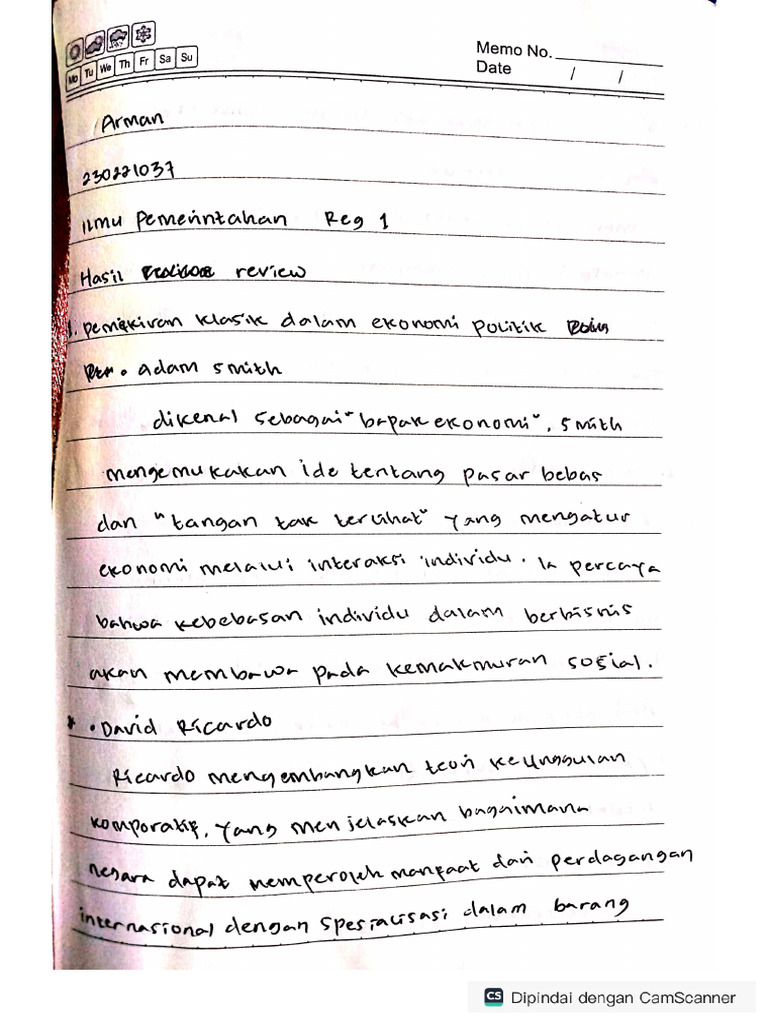 Memo No.
Mo Tu We Th Fr Sa Su
Date / /
Arman
230221037
ilmu pemerintahan Reg 1
Hasil review
1. pemikiran klasik dalam ekonomi politik
• adam smith
dikenal sebagai "bapak ekonomi", smith
mengemukakan ide tentang pasar bebas
dan "tangan tak terlihat" yang mengatur
ekonomi melalui interaksi individu. Ia percaya
bahwa kebebasan individu dalam berbisnis
akan membawa pada kemakmuran sosial.
* • David Ricardo
Ricardo mengembangkan teori keunggulan
komparatif, yang menjelaskan bagaimana
negara dapat memperoleh manfaat dari perdagangan
internasional dengan spesialisasi dalam barang
CS Dipindai dengan CamScanner